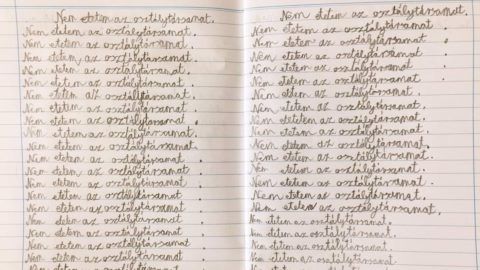 Nem etetem az osztálytársamat.
Nem etetem az osztálytársamat.
Nem etetem az osztálytársamat.
Nem etetem az osztálytársamat.
Nem etetem az osztálytársamat.
Nem etetem az osztálytársamat.
Nem etetem az osztálytársamat.
Nem etetem az osztálytársamat.
Nem etetem az osztálytársamat.
Nem etetem az osztálytársamat.
Nem etetem az osztálytársamat.
Nem etetem az osztálytársamat.
Nem etetem az osztálytársamat.
Nem etetem az osztálytársamat.
Nem etetem az osztálytársamat.
Nem etetem az osztálytársamat.
Nem etetem az osztálytársamat.
Nem etetem az osztálytársamat.
Nem etetem az osztálytársamat.
Nem etetem az osztálytársamat.
Nem etetem az osztálytársamat.
Nem etetem az osztálytársamat.
Nem etetem az osztálytársamat.
Nem etetem az osztálytársamat.
Nem etetem az osztálytársamat.
Nem etetem az osztálytársamat.
Nem etetem az osztálytársamat.
Nem etetem az osztálytársamat.
Nem etetem az osztálytársamat.
Nem etetem az osztálytársamat.
Nem etetem az osztálytársamat.
Nem etetem az osztálytársamat.
Nem etetem az osztálytársamat.
Nem etetem az osztálytársamat.
Nem etetem az osztálytársamat.
Nem etetem az osztálytársamat.
Nem etetem az osztálytársamat.
Nem etetem az osztálytársamat.
Nem etetem az osztálytársamat.
Nem etetem az osztálytársamat.
Nem etetem az osztálytársamat.
Nem etetem az osztálytársamat.